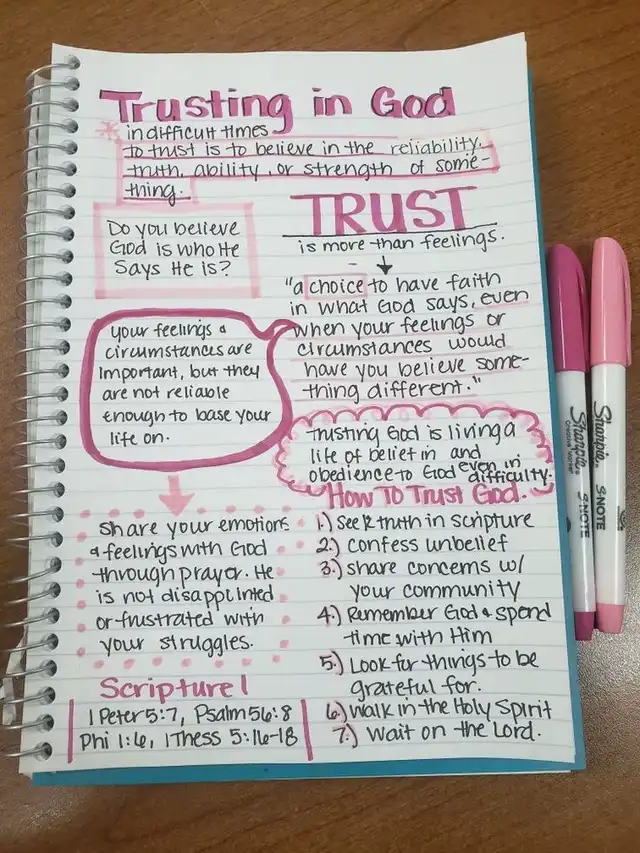 Trusting in God
* in difficult times
to trust is to believe in the reliability,
truth, ability, or strength of some-
thing.
Do you believe
God is who He
Says He is?
TRUST
is more than feelings.
"a choice to have faith
in what God says, even
when your feelings or
circumstances would
have you believe some-
thing different."
Your feelings &
circumstances are
important, but they
are not reliable
enough to base your
life on.
Trusting God is living a
life of belief in and
obedience to God even in
difficulty.
Share your emotions
& feelings with God
through prayer. He
is not disappointed
or frustrated with
your struggles.
How To Trust God.
1.) Seek truth in scripture
2.) Confess unbelief
3.) share concerns w/
your community
4.) Remember God & spend
time with Him
5.) Look for things to be
grateful for.
6.) Walk in the Holy Spirit
7.) Wait on the Lord.
Scripture!
1 Peter 5:7, Psalm 56:8
Phi 1:6, 1 Thess 5:16-18
Sharpie
S·NOTE
Sharpie
S·NOTE